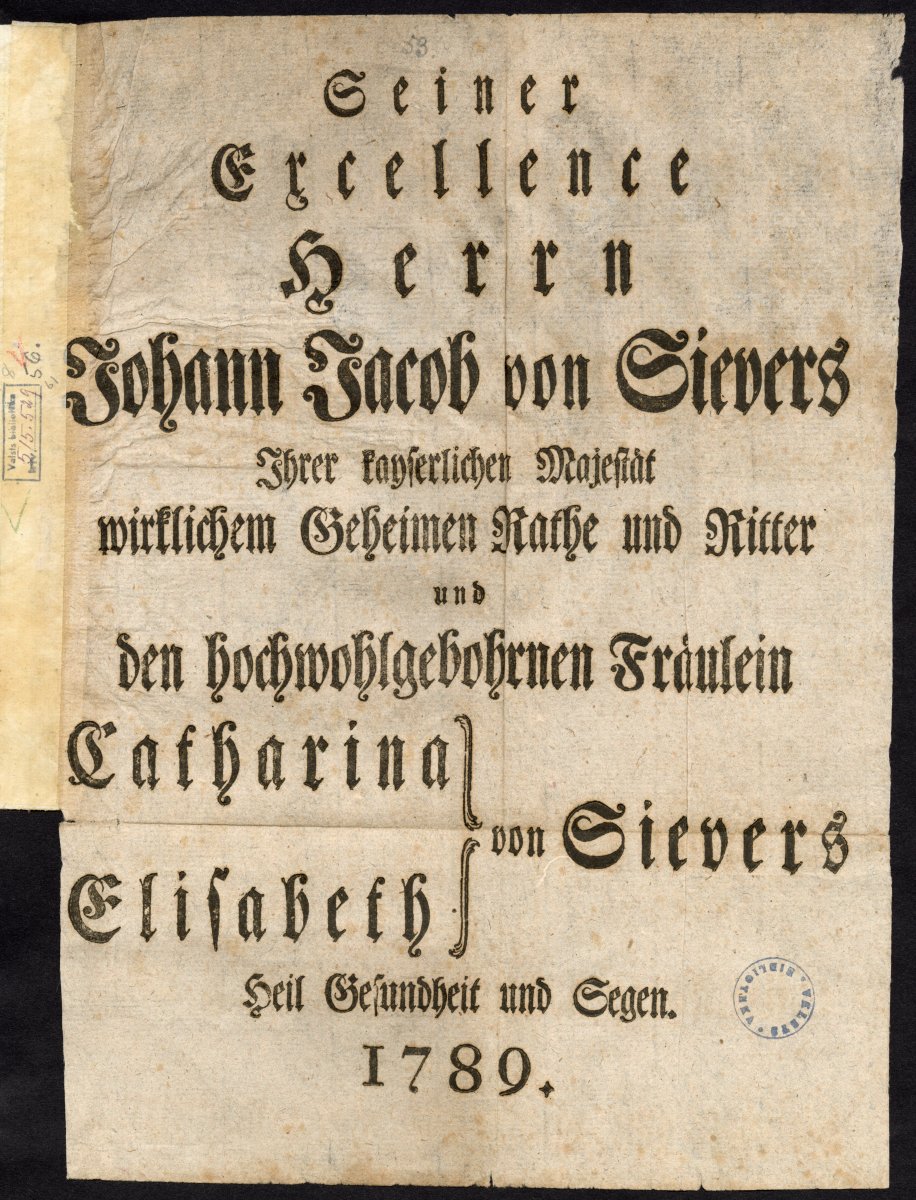 53
Seiner
Excellence
Herrn
Johann Jacob von Sievers
Ihrer kayserlichen Majestät
wirklichem Geheimen Rathe und Ritter
und
den hochwohlgebohrnen Fräulein
Catharina
von Sievers
Elisabeth
Heil Gesundheit und Segen.
1789.
Valsts bibliotēka
VALSTS BIBLIOTEKA